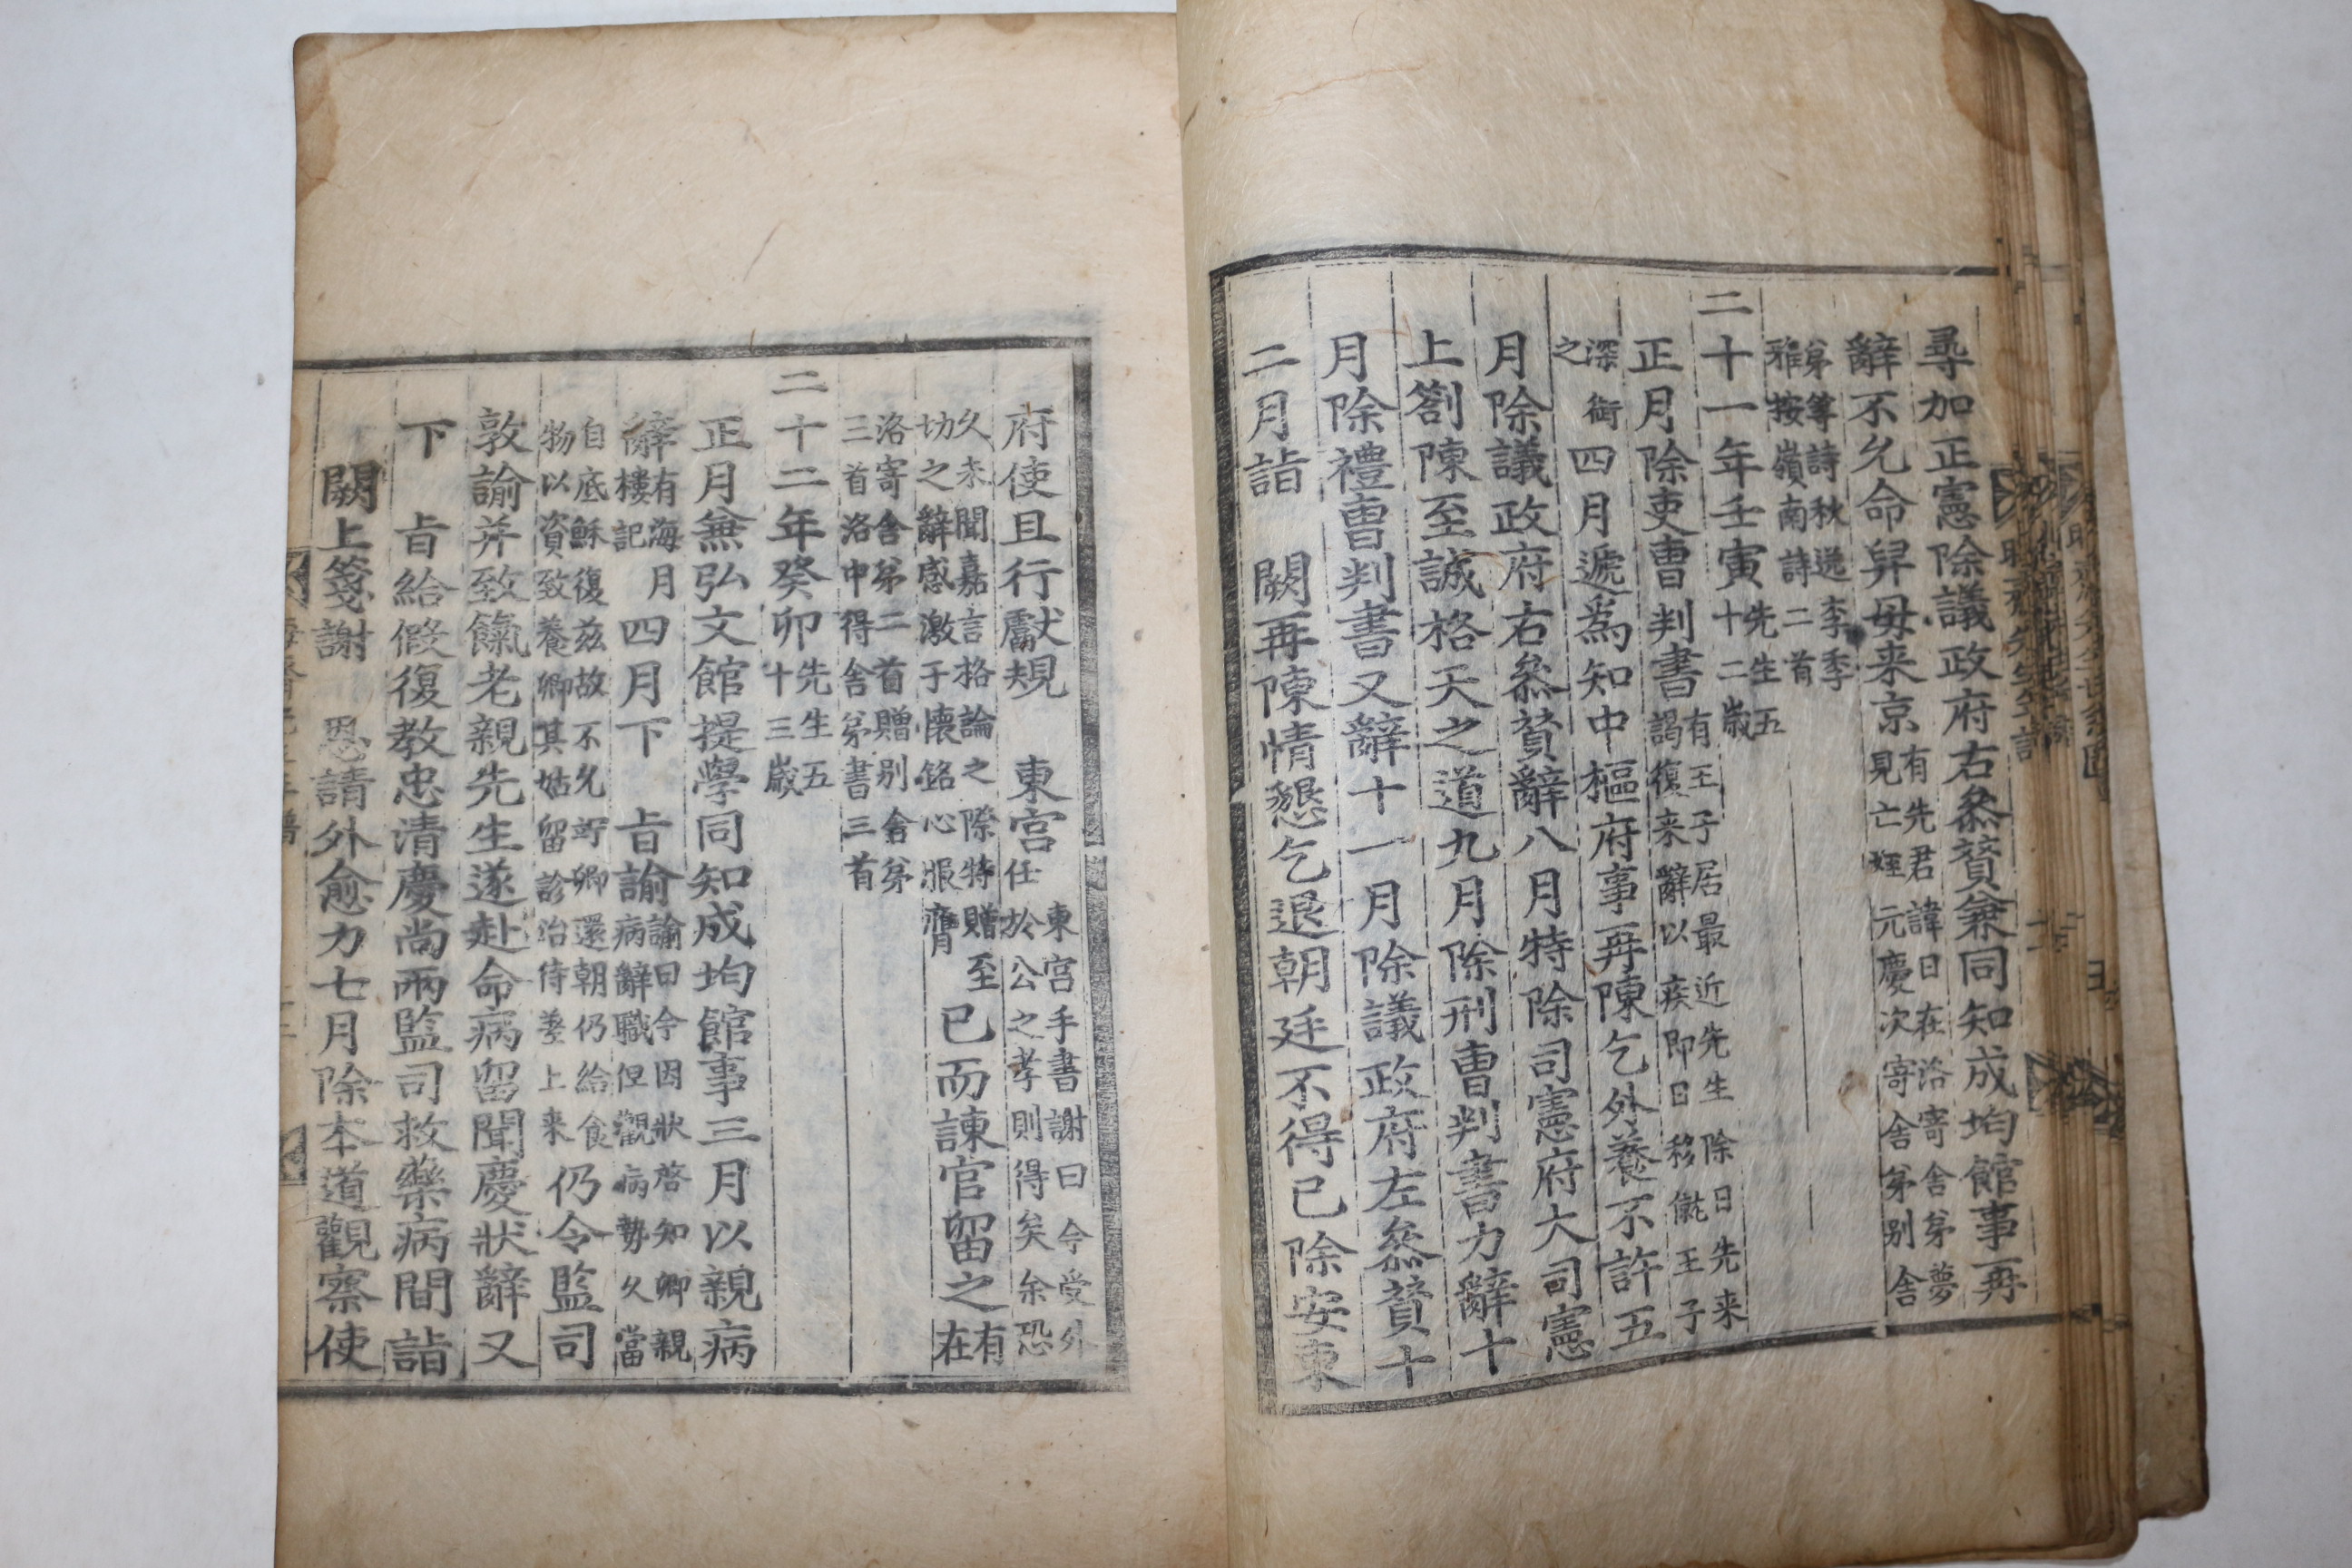 尋加正憲除議政府右叅賛兼同知成均館事再
辭不允命舁母来京有先君諱日在洛寄舍苐夢
見亡姪元慶次寄舍苐别舍
苐等詩秋送李季
雅按嶺南詩二首
二十一年壬寅先生五
十二歳
正月除吏曹判書有王子居最近先生除日先来
謁復来辭以疾即日移僦王子
深銜
之
四月遞為知中樞府事再陳乞外養不許五
月除議政府右叅賛辭八月特除司憲府大司憲
上劄陳至誠格天之道九月除刑曹判書力辭十
月除禮曹判書又辭十一月除議政府左叅賛十
二月詣　闕再陳情懇乞退朝廷不得已除安東
府使且行獻規　東宮東宮手書謝曰今受外
任於公之孝則得矣余恐
久未聞嘉言格論之際特贈至
切之辭感激于懐銘心服膺
已而諫官留之有
在
洛寄舍苐二首贈别舍苐
三首洛中得舍苐書三首
二十二年癸卯先生五
十三歳
正月兼弘文館提學同知成均館事三月以親病
辭有海月
樓記
四月下　旨諭諭曰今因狀啓知卿親
病辭職但觀病勢久當
自底穌復玆故不允可卿還朝仍給食
物以資致養卿其姑留診治待差上来
仍令監司
敦諭并致餼老親先生遂赴命病留聞慶狀辭又
下　旨給假復教忠清慶尚兩監司救藥病間詣
闕上箋謝　恩請外愈力七月除本道觀察使